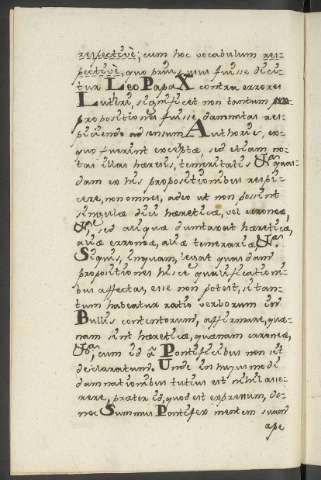 respectivè; cum hoc vocabulum res-
pectivè, quo prius usus fuisse dici-
tur Leo Papa X contra errores
Lutheri, significet non tantum
propositiones fuisse damnatas res-
piciendo ad sensum Authoris, ex
quo fuerint excerptæ, sed etiam no-
tas illas hæresis, temeritatis &ca quas-
dam ex his propositionibus respi-
cere, non omnes, adeo ut non possint
singulæ dici hæreticæ, vel erroneæ
&ca, sed aliquæ duntaxat hæreticæ,
aliæ erroneæ, aliæ temerariæ, &ca.
Siquis, inquam, legat quasdam
propositiones hisce qualificationi-
bus affectas, esse non potest, si tan-
tum habeatur ratio verborum in
Bullis contentorum, affirmare, quæ-
nam sint hæreticæ, quænam erroneæ,
&ca, cum id a Pontificibus non sit
declaratum. Unde in hujusmodi
damnationibus tutius est nihil asse-
rere, præter id, quod est expressum, do-
nec Summus Pontifex mentem suam
ape